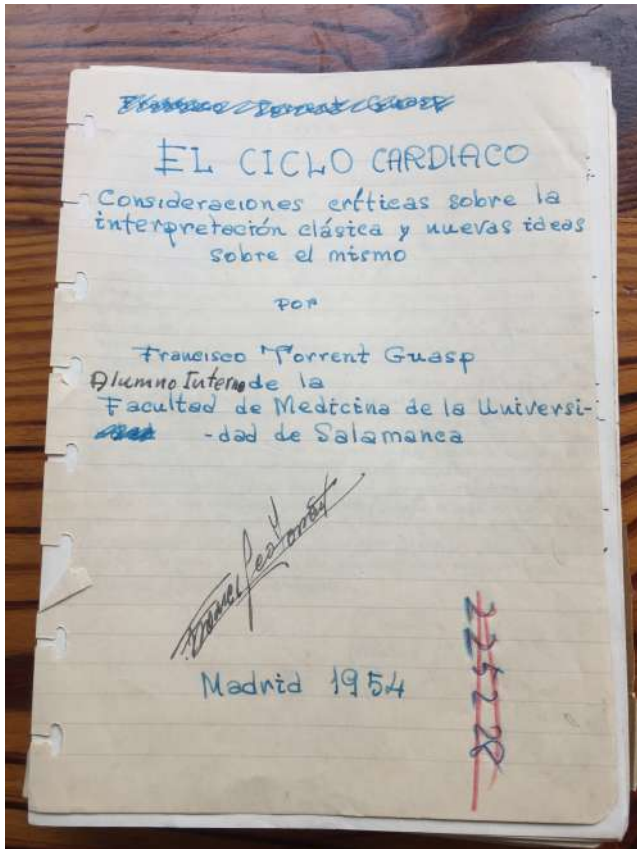 Francisco Torrent Guasp
EL CICLO CARDIACO
Consideraciones críticas sobre la
interpretación clásica y nuevas ideas
sobre el mismo
POR
Francisco Torrent Guasp
Alumno Interno de la
Facultad de Medicina de la Universi-
-dad de Salamanca
Madrid 1954
225228